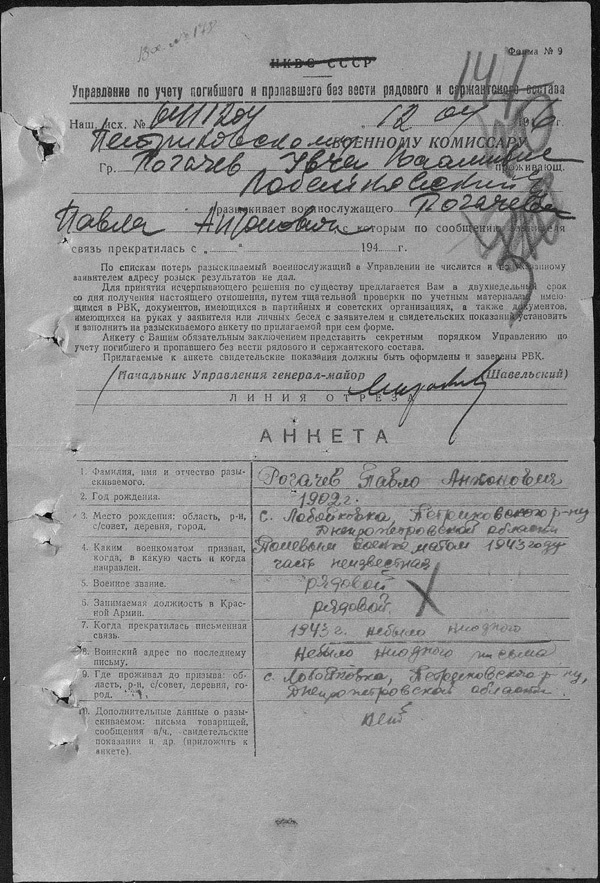 Форма № 9
НКВС СССР
Управление по учету погибшего и пропавшего без вести рядового и сержантского состава
Наш. исх. № 12 04 1946 г.
Петриковскому ВОЕННОМУ КОМИССАРУ
Гр. проживающ.
разыскивает военнослужащего
Павла с которым по сообщению заявителя
связь прекратилась с „ “ 194 г.
По спискам потерь разыскиваемый военнослужащий в Управлении не числится и по указанному
заявителем адресу розыск результатов не дал.
Для принятия исчерпывающего решения по существу предлагается Вам в двухнедельный срок
со дня получения настоящего отношения, путем тщательной проверки по учетным материалам, имею-
щимся в РВК, документов, имеющихся в партийных и советских организациях, а также документов,
имеющихся на руках у заявителя или личных бесед с заявителем и свидетельских показаний, установить
и заполнить на разыскиваемого анкету по прилагаемой при сем форме.
Анкету с Вашим обязательным заключением представить секретным порядком Управлению по
учету погибшего и пропавшего без вести рядового и сержантского состава.
Прилагаемые к анкете свидетельские показания должны быть оформлены и заверены РВК.
Начальник Управления генерал-майор (Шавельский)
ЛИНИЯ ОТРЕЗА
АНКЕТА
1. Фамилия, имя и отчество разы-
скиваемого.
Рогачев Павло Антонович
2. Год рождения.
1902 г.
3. Место рождения: область, р-н,
с/совет, деревня, город.
с. Лобойковка, Петриковского р-ну,
Днепропетровской области
4. Каким военкоматом призван,
когда, в какую часть и когда
направлен.
Полевым военкоматом 1943 году
часть неизвестная
5. Военное звание.
рядовой
6. Занимаемая должность в Крас-
ной Армии.
рядовой.
7. Когда прекратилась письменная
связь.
1943 г. небыло ниодного
8. Воинский адрес по последнему
письму.
небыло ниодного письма
9. Где проживал до призыва: об-
ласть, р-н, с/совет, деревня, го-
род.
с. Лобойковка, Петриковского р-ну,
Днепропетровской области.
10. Дополнительные данные о разы-
скиваемом: письма товарищей,
сообщения в/ч., свидетельские
показания и др. (приложить к
анкете).
нет